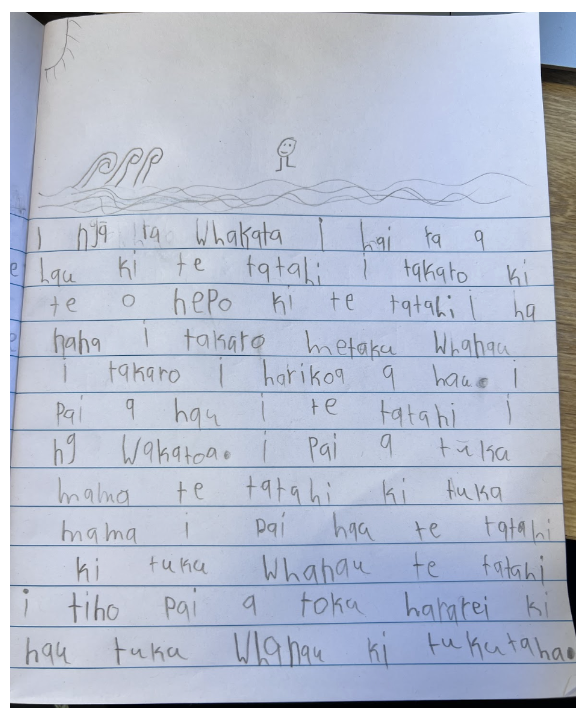 i ngā ra Whakata i hai ta a
hau ki te tatahi i takaro ki
te o hepo ki te tatahi i ha
haha i takaro metaku Whahau
i takaro i harikoa a hau. i
pai a hau i te tatahi i
ng Wakatoa. i pai a tuka
mama te tatahi ki tuka
mama i pai hau te tatahi
ki tuku Whahau te tatahi
i tiho pai a toka hararei ki
hau tuka Whahau ki tukutaha.